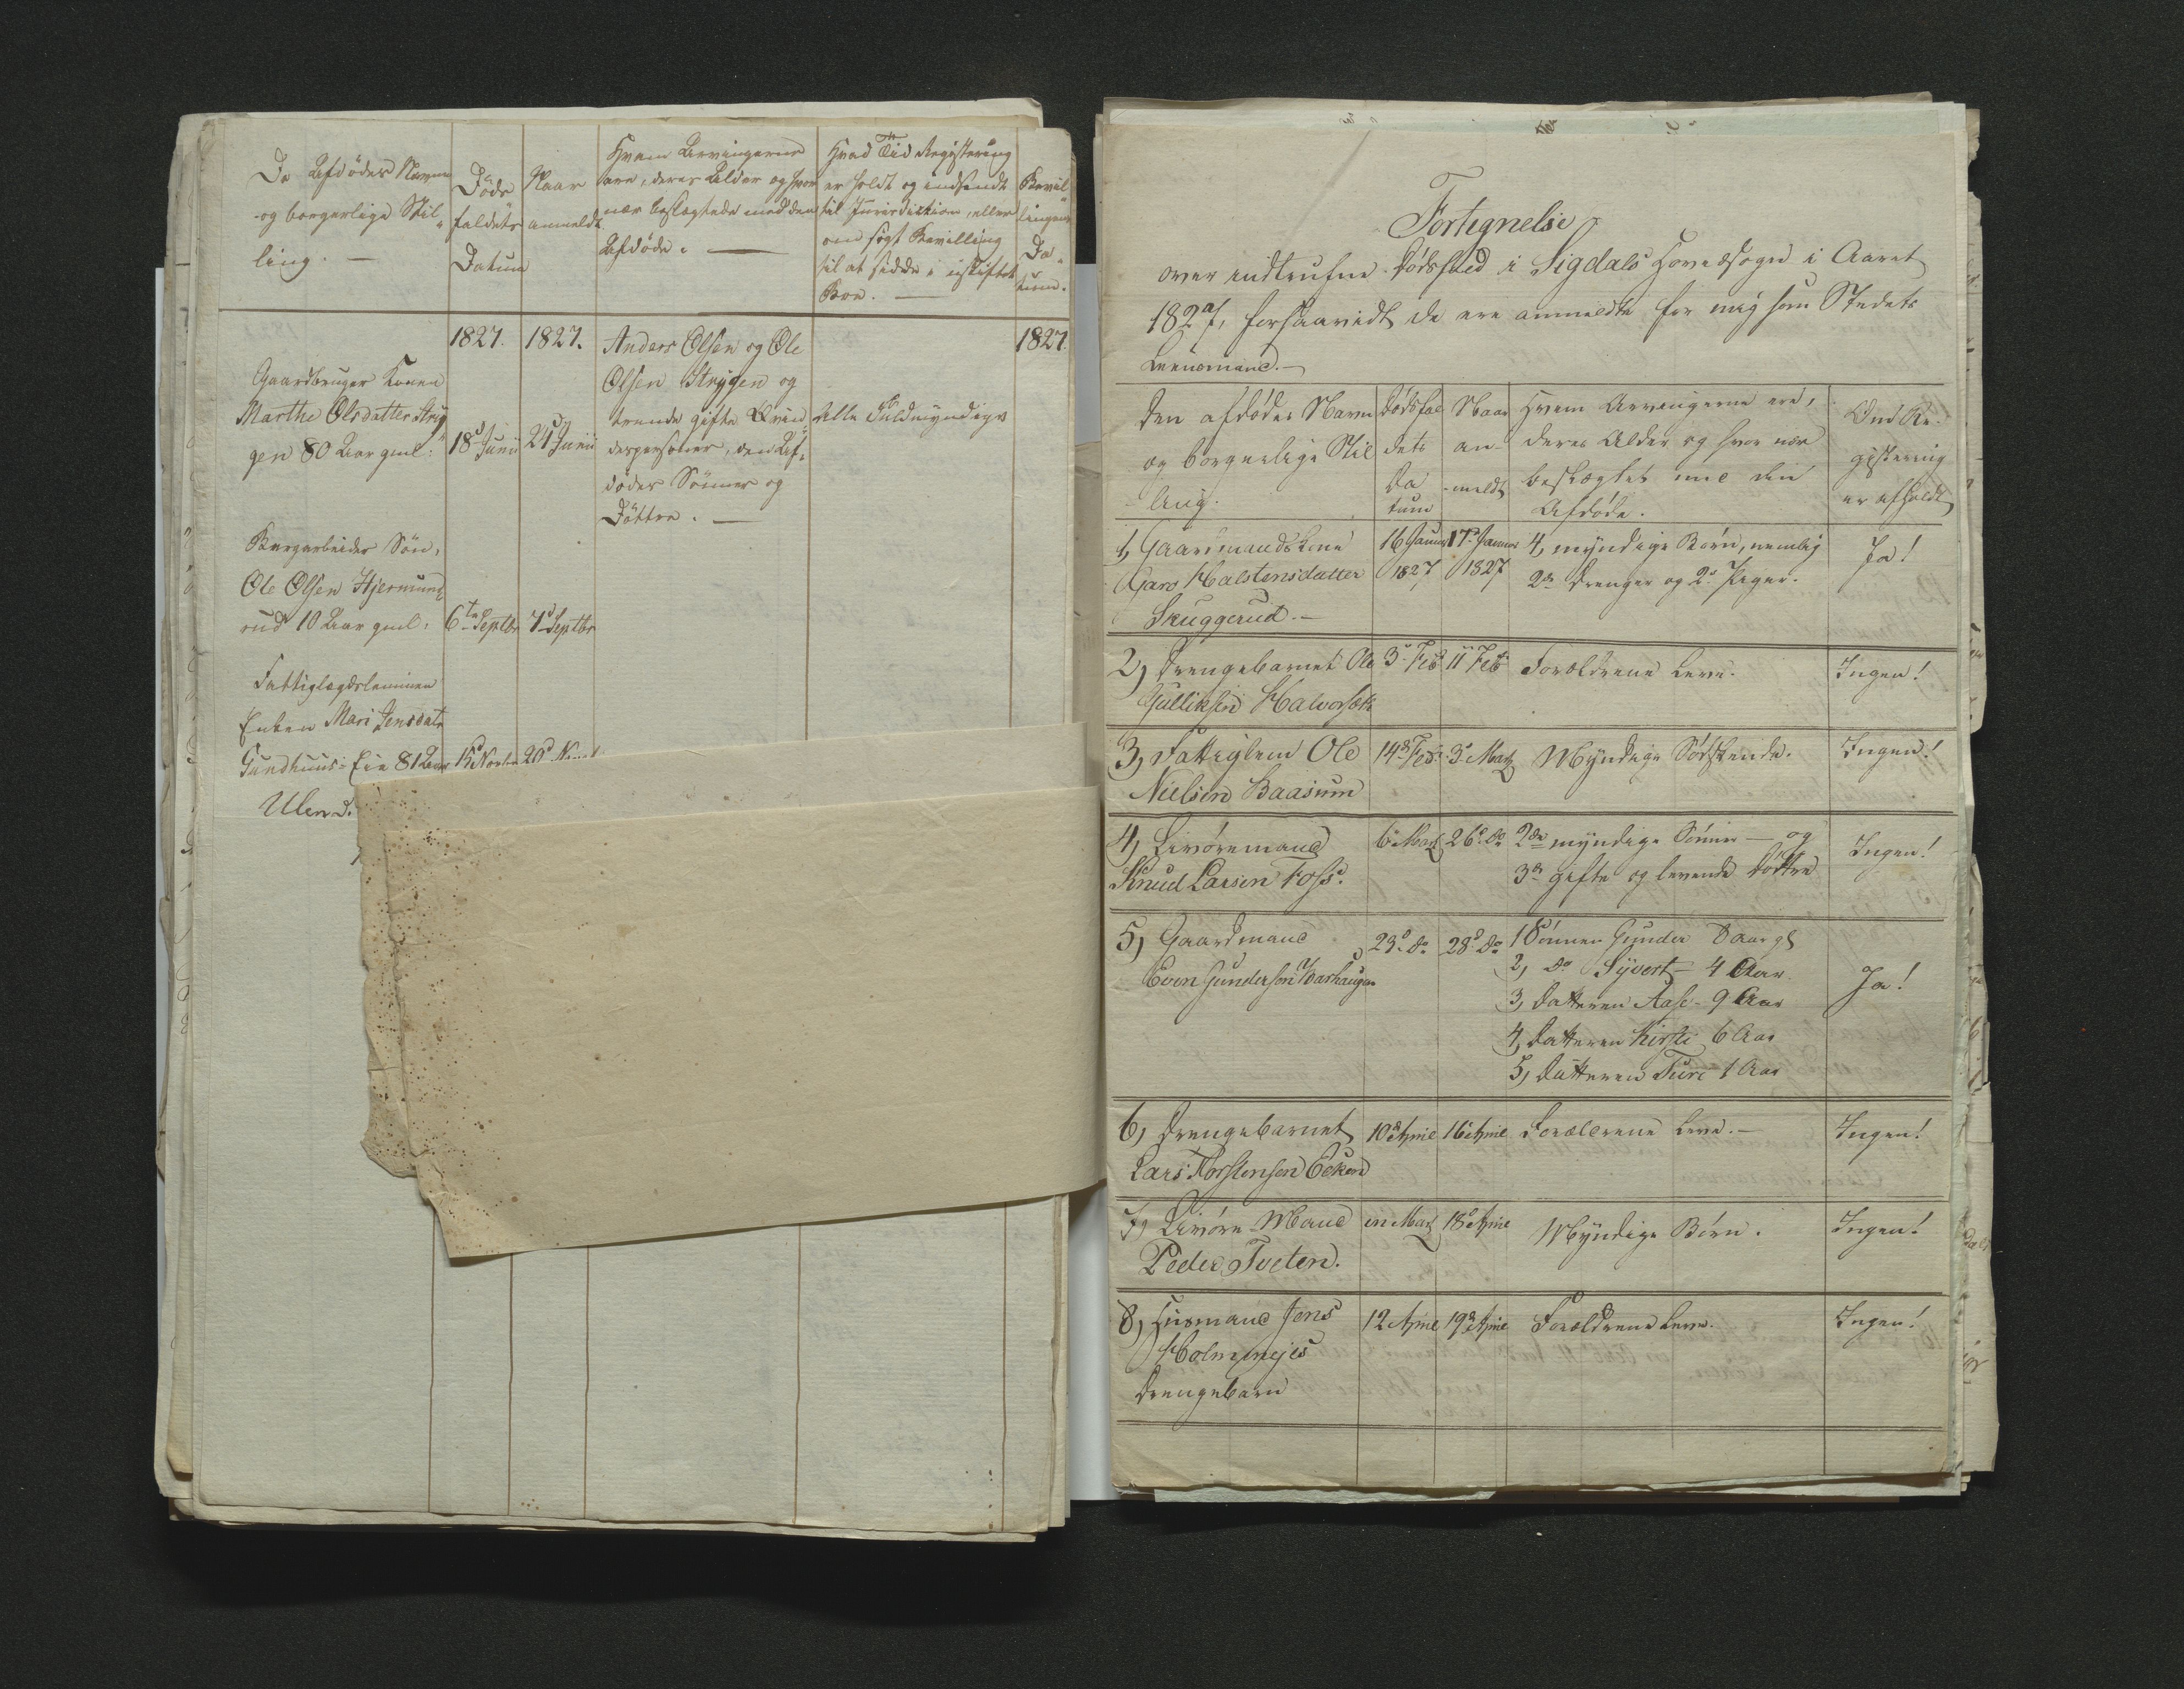 De Afdødes Navne
og borgerlige Stil-
ling. —
Døds
faldets
Datum
Naar
anmeldt
Hvem Arvingerne
ere, deres Alder og hvor
nær beslægtede med den
Afdøde. —
Hvad Tid Registering
er holdt og indsendt
til Jurisdiction, eller
om søgt Bevilling
til at sidde i uskiftet
Boe. —
Bevil
lingens
Da-
tum.
1827.
1827.
1827.
Gaardbruger Konen
Marthe Olsdatter Stry
gen 80 Aar gml:
18d Junii
21d Junii
Anders Olsen og Ole
Olsen Strygen og
trende gifte Qvin-
despersoner, den Af-
dødes Sønner og
Døttre. —
Alle Fuldmyndige
Bergarbeider Søn,
Ole Olsen Hjermund
rud 10 Aar gml.
6te Septbr
7d Septbr
Fattiglægdslemmen
Enken Mari Jensdatr
Sundhuus-Eie 81 Aar
15d Novbr
20d
Ulen d.
Fortegnelse
over indtrufne Dødsfald i Sigdals Hovedsogn i Aaret
1827, forsaavidt de ere anmeldte for mig som Stedets
Leensmand. —
Den afdødes Navn
og borgerlige Stil
ling.
Dødsfal
dets
Da
tum
Naar
an-
meldt
Hvem Arvingerne ere,
deres Alder og hvor nær
beslægtet med den
Afdøde.
Om Re-
gistering
er afholdt
1, Gaardmandskone
Kari Halstensdatter
Skuggerud. —
16 Januar
1827
17d Januar
1827
4, myndige Børn, nemlig
2de Drenge og 2de Piger.
Ja!
2, Drengebarnet Ole
Gulliksen Halvorsek
3d Feb
11 Feb
Forældrene leve.
Ingen!
3, Fattiglem Ole
Nielsen Baasum
14d Feb:
3d Marz
Myndige Sødskende.
Ingen!
4, Livøremand
Knud Larsen Foss.
6d Marz
26d do
2de myndige Sønner — og
3de gifte og levende Døttre
Ingen!
5, Gaardmand
Even Gundersen Varhaugen
23d do
28d do
1 Sønnen Gunder 8 aar gl
2, do Syvert — 4 Aar
3, Datteren Aase — 9 Aar
4, Datteren Kirsti 6 Aar
5, Datteren Turi 1 Aar
Ja!
6, Drengebarnet
Lars Torstensen Eekern
10d April
16d April
Forældrene leve. —
Ingen!
7, Livøre Mand
Peder Tveten.
in Marz
18d April
Myndige Børn.
Ingen!
8, Huusmand Jens
Holmmejes
Drengebarn
12 April
19d April
Forældrene leve.
Ingen!